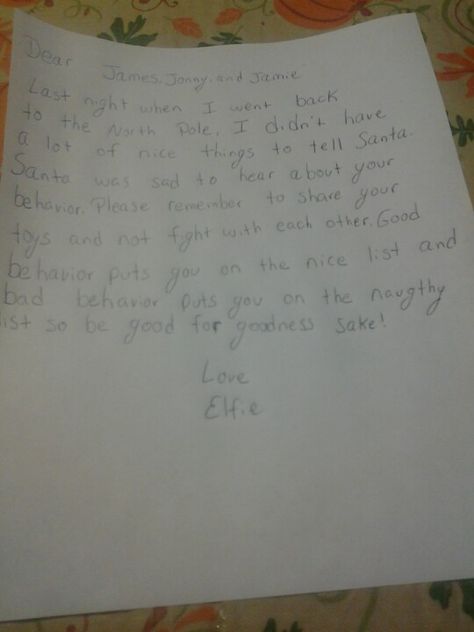 Dear James, Jonny, and Jamie
Last night when I went back
to the North Pole, I didn't have
a lot of nice things to tell Santa.
Santa was sad to hear about your
behavior. Please remember to share your
toys and not fight with each other. Good
behavior puts you on the nice list and
bad behavior puts you on the naugthy
list so be good for goodness sake!
Love
Elfie